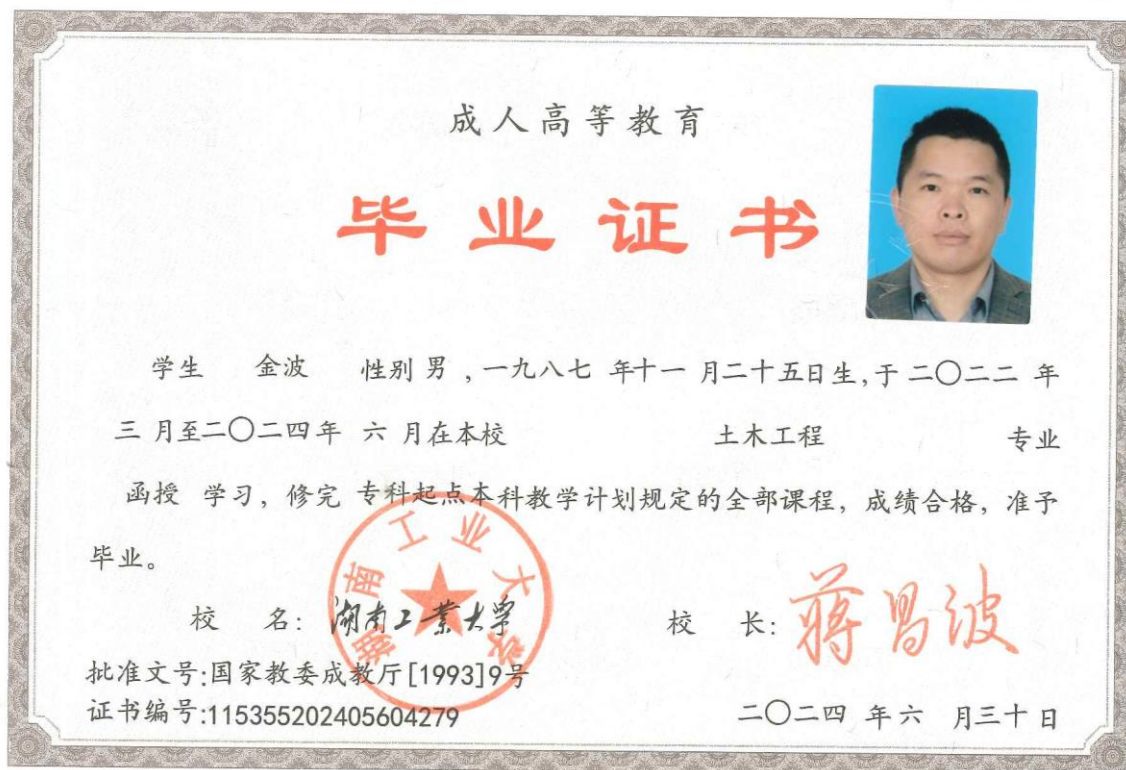 成人高等教育
毕业证书
学生 金波 性别 男 ,一九八七 年十一 月二十五日生,于 二〇二二 年
三 月至二〇二四年 六 月在本校 土木工程 专业
函授 学习，修完 专科起点本科教学计划规定的全部课程，成绩合格，准予
毕业。
湖南工业大学
校 名: 湖南工业大学 校 长: 蒋昌波
批准文号:国家教委成教厅[1993]9号
证书编号:115355202405604279 二〇二四 年六 月三十日